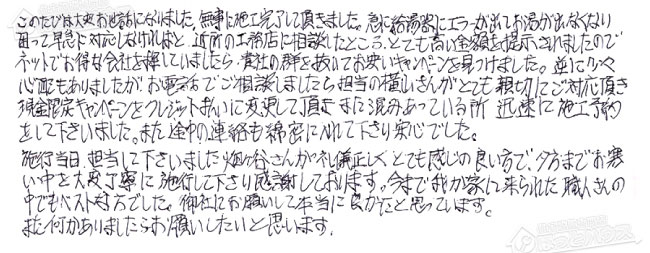 このたびは大変お世話になりました。無事に施工完了して頂きました。急に給湯器にエラーが出てお湯が出なくなり
困って早急に対応しなければと、近所の工務店に相談したところ、とても高い金額を提示されましたので
ネットでお得な会社を探していましたら、貴社の群を抜いてお安いキャンペーンを見つけました。逆に少々
心配もありましたが、お電話でご相談しましたら担当の横山さんがとても親切にご対応頂き
現金限定キャンペーンをクレジット払いに変更して頂き また混みあっている所 迅速に施工予約
をして下さいました。また途中の連絡も綿密に入れて下さり安心でした。
施行当日 担当して下さいました畑ヶ谷さんが礼儀正しくとても感じの良い方で、夕方までお寒
い中を大変丁寧に施行して下さり感謝しております。今まで我が家に来られた職人さんの
中でもベストな方でした。御社にお願いして本当に良かたと思っています。
また何かありましたらお願いしたいと思います。